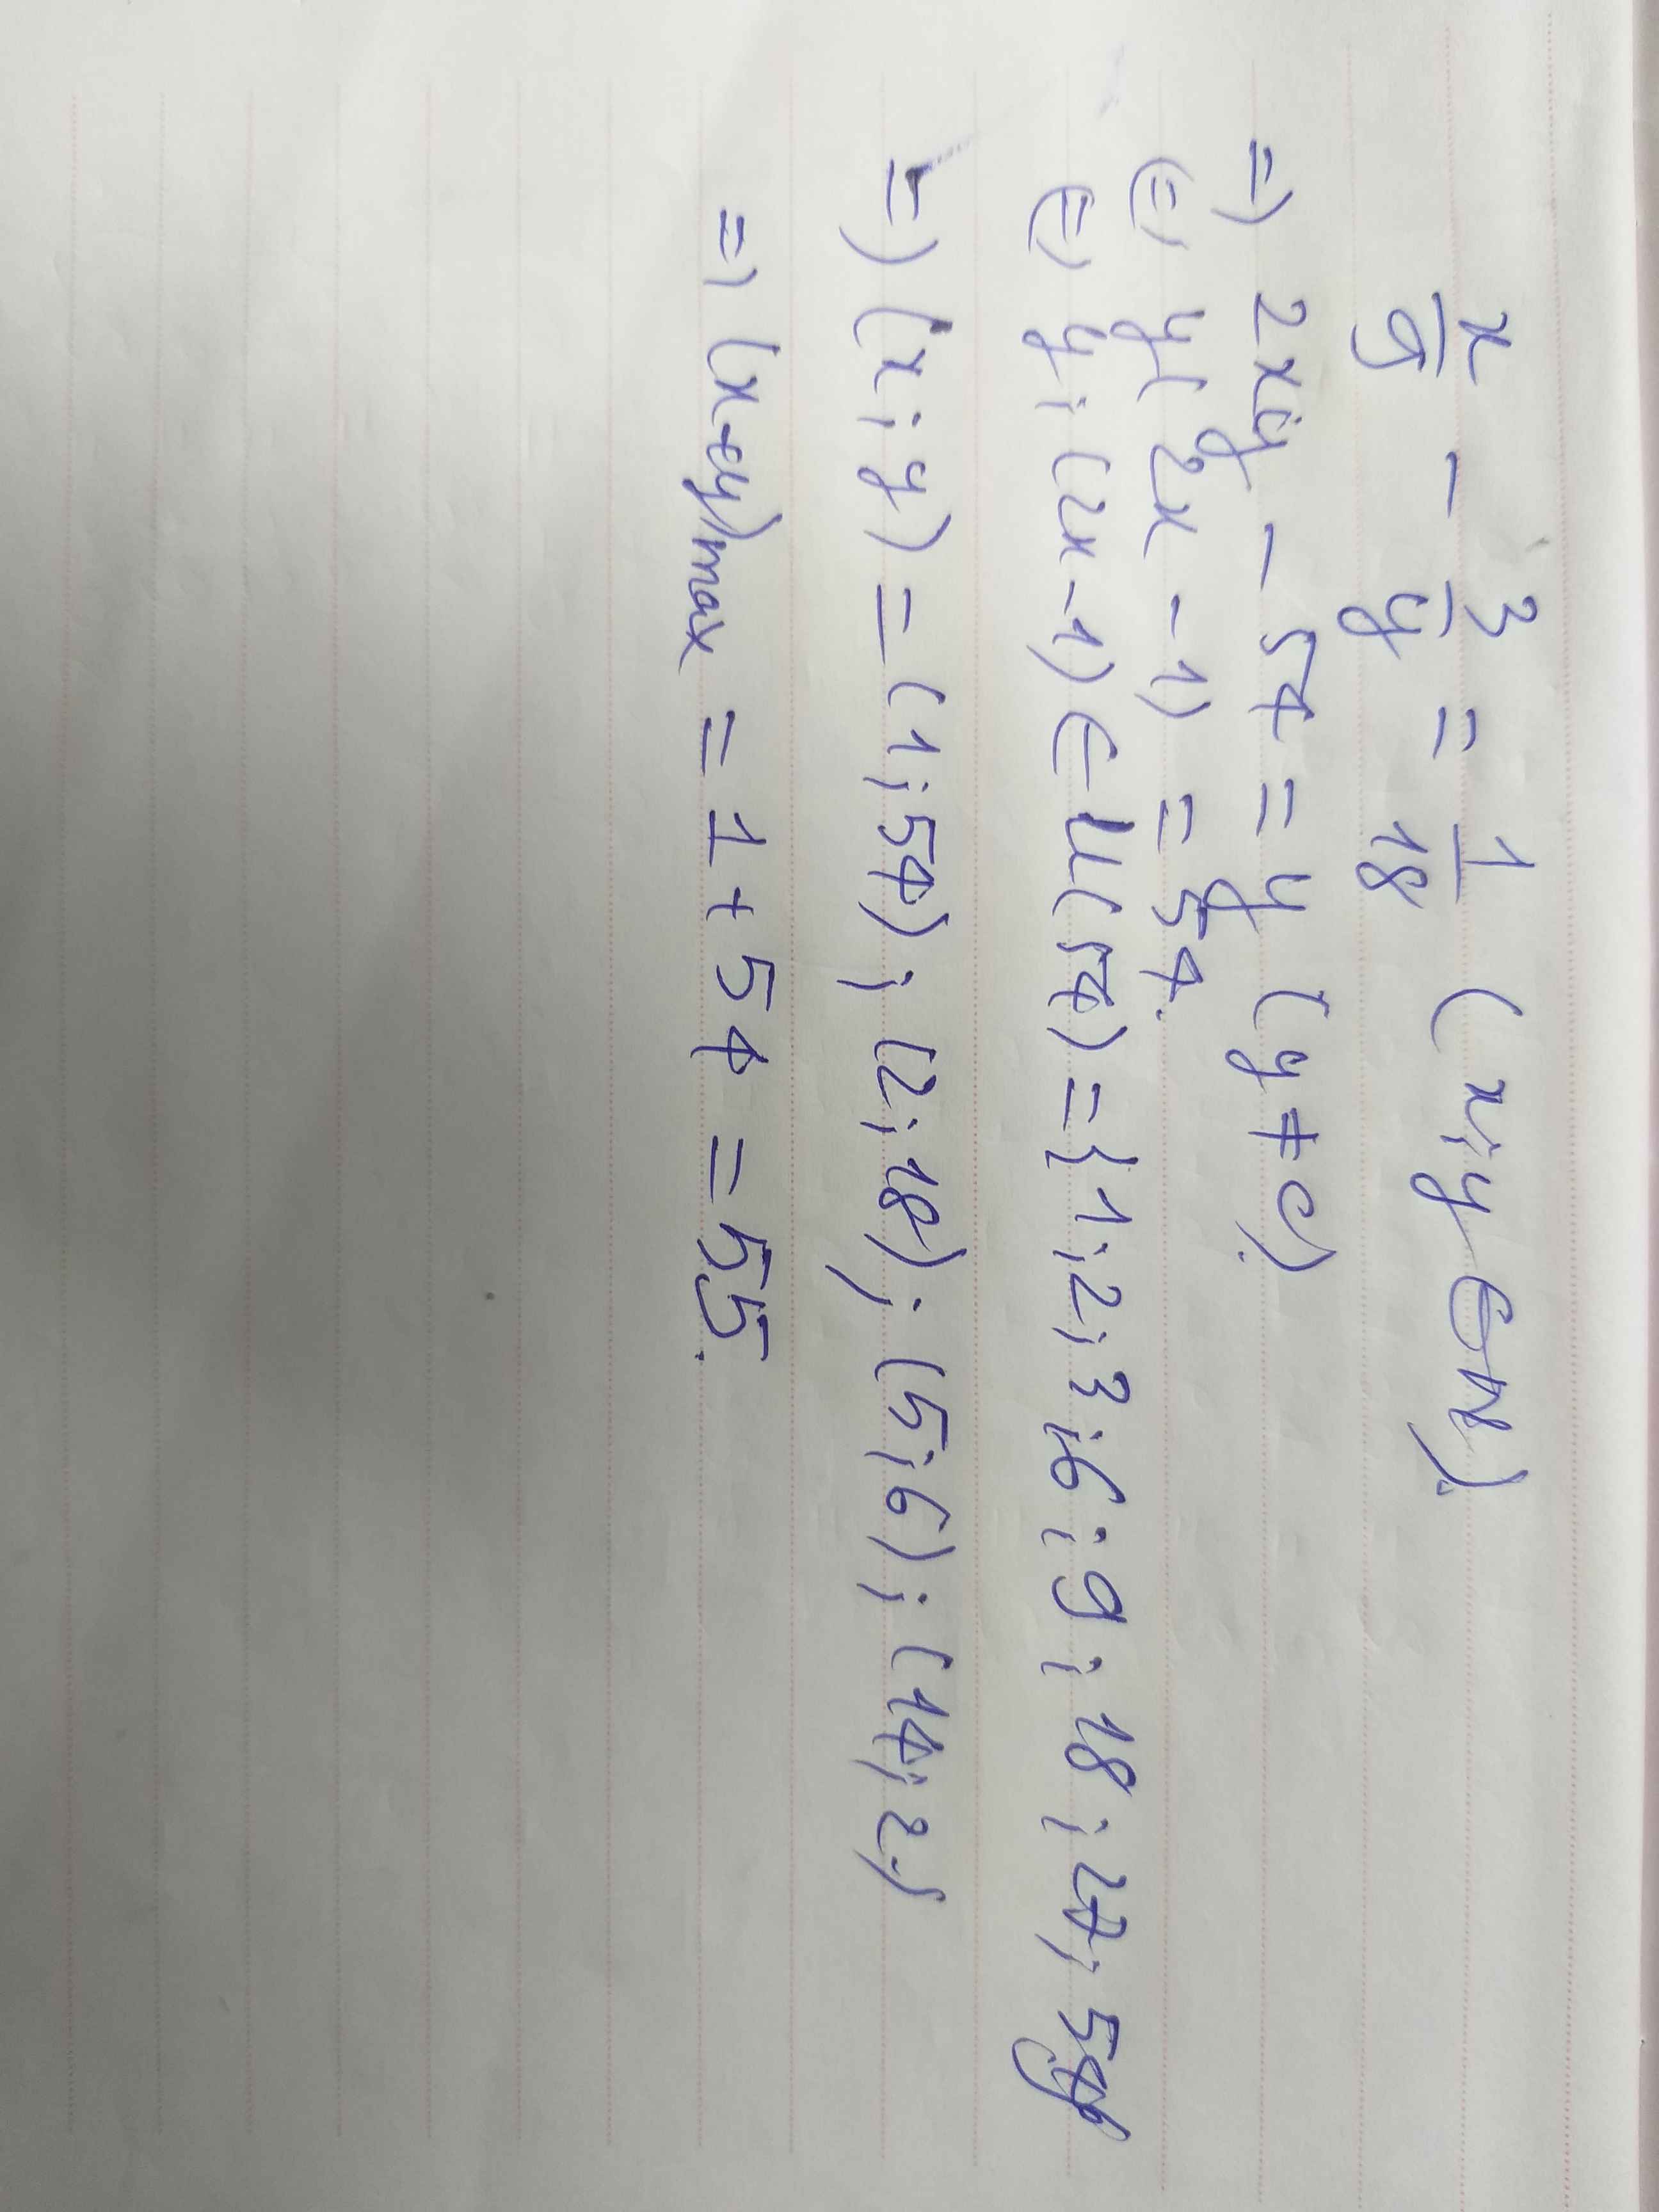 x/9 - 3/y = 1/18 (x; y ∈ N).
=> 2xy - 54 = y (y ≠ 0).
<=> y(2x - 1) = 54.
<=> y; (2x-1) ∈ Ư(54) = {1; 2; 3; 6; 9; 18; 27; 54}
=> (x; y) = (1; 54); (2; 18); (5; 6); (14; 2)
=> (x+y)max = 1 + 54 = 55.